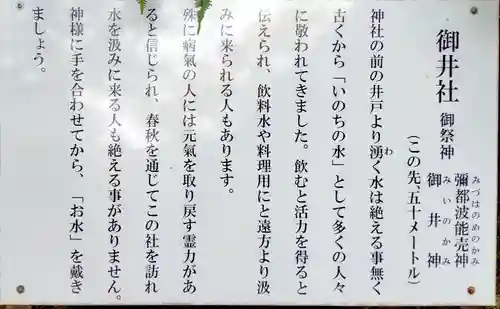 御井社 御祭神 彌都波能売神 みづはのめのかみ
御井神 みいのかみ
(この先、五十メートル)
神社の前の井戸より湧く水は絶える事無く わ
古くから「いのちの水」として多くの人々
に敬われてきました。飲むと活力を得ると
伝えられ、飲料水や料理用にと遠方より汲
みに来られる人もあります。
殊に病氣の人には元氣を取り戻す霊力があ
ると信じられ、春秋を通じてこの社を訪れ
水を汲みに来る人も絶える事がありません。
神様に手を合わせてから、「お水」を戴き
ましょう。